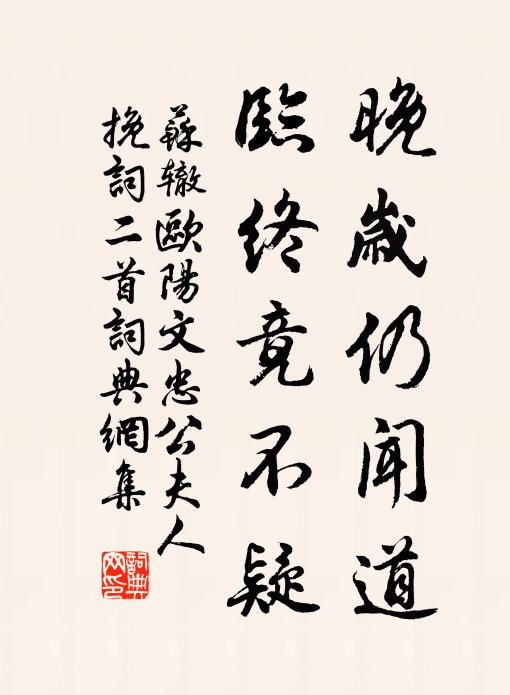 晚歲仍闻道
臨终竟不疑
蘇辙歐陽文忠公夫人
挽詞二首詞典網集
詞典網印